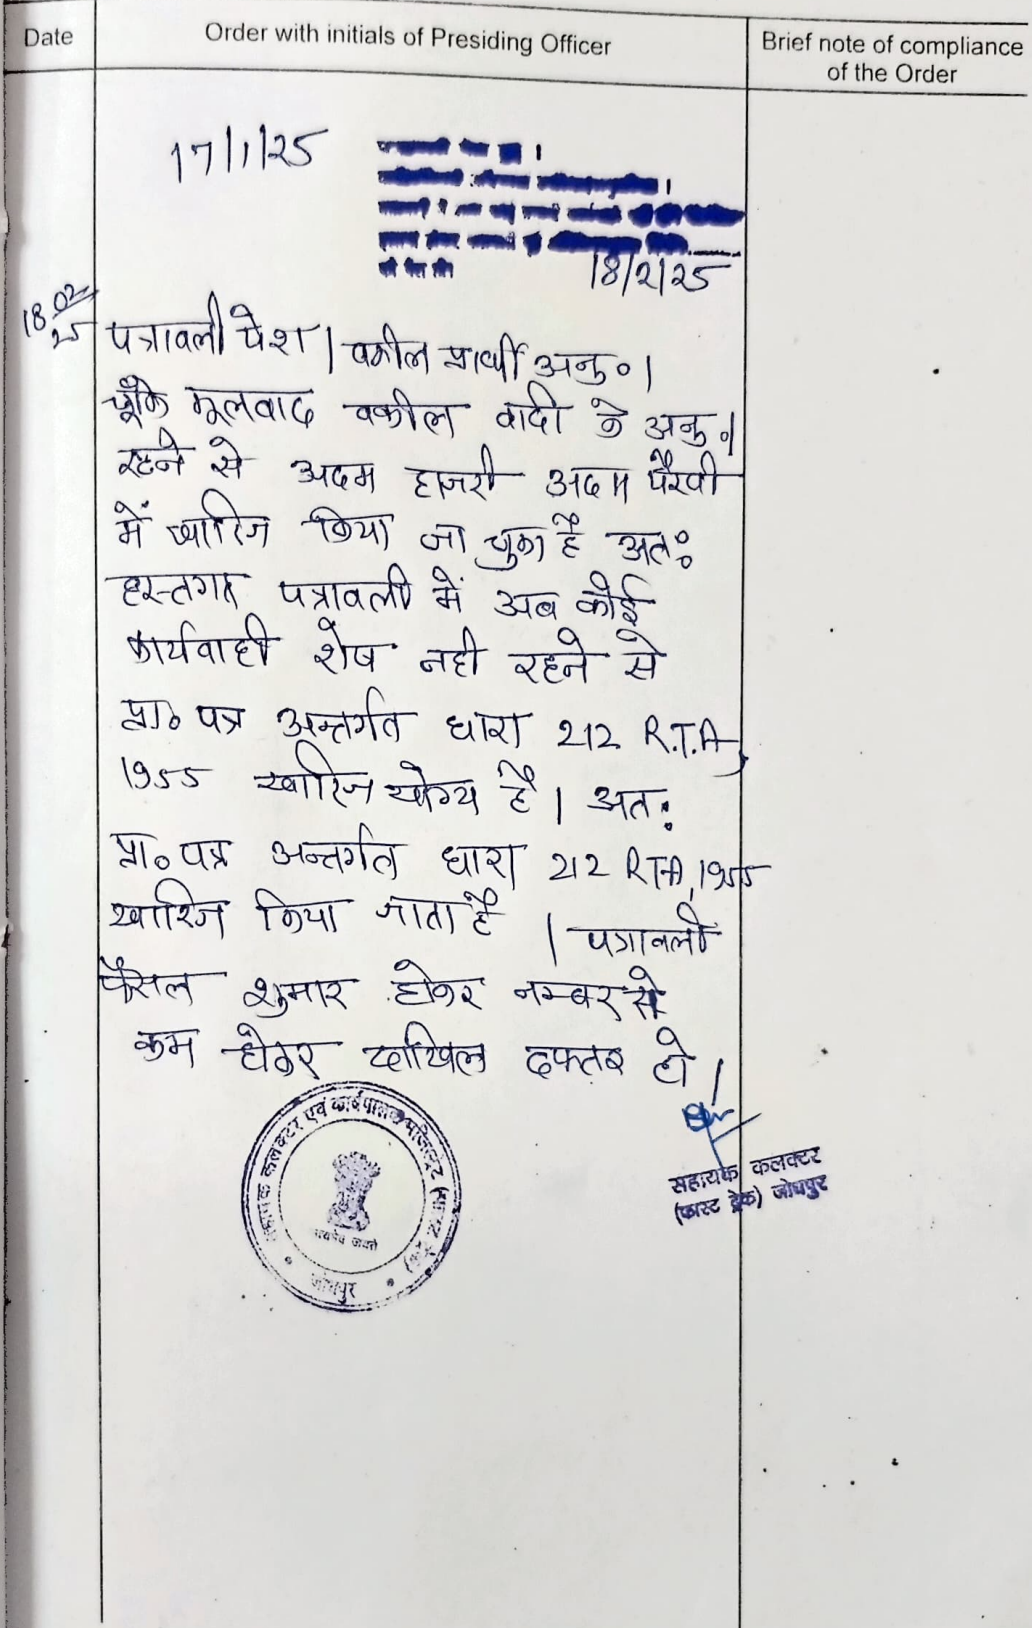 Date
Order with initials of Presiding Officer
Brief note of compliance
of the Order
17/1/25
18/2/25
18 02/25
पत्रावली पेश | वकील प्रार्थी अनु० |
चूँकि मूलवाद वकील वादी के अनु०|
रहने से अदम हाजरी अदम पैरवी
में खारिज किया जा चुका है अतः
हस्तगत पत्रावली में अब कोई
कार्यवाही शेष नही रहने से
प्रा० पत्र अन्तर्गत धारा 212 R.T.A,
1955 खारिज योग्य है | अतः
प्रा० पत्र अन्तर्गत धारा 212 RTA, 1955
खारिज किया जाता है | पत्रावली
फैसल शुमार होकर नम्बर से
कम होकर दाखिल दफ्तर हो |
सहायक कलक्टर
(फास्ट ट्रेक) जोधपुर
सहायक कलक्टर एवं कार्यपालक मजिस्ट्रेट (फास्ट ट्रेक)
सत्यमेव जयते
जोधपुर